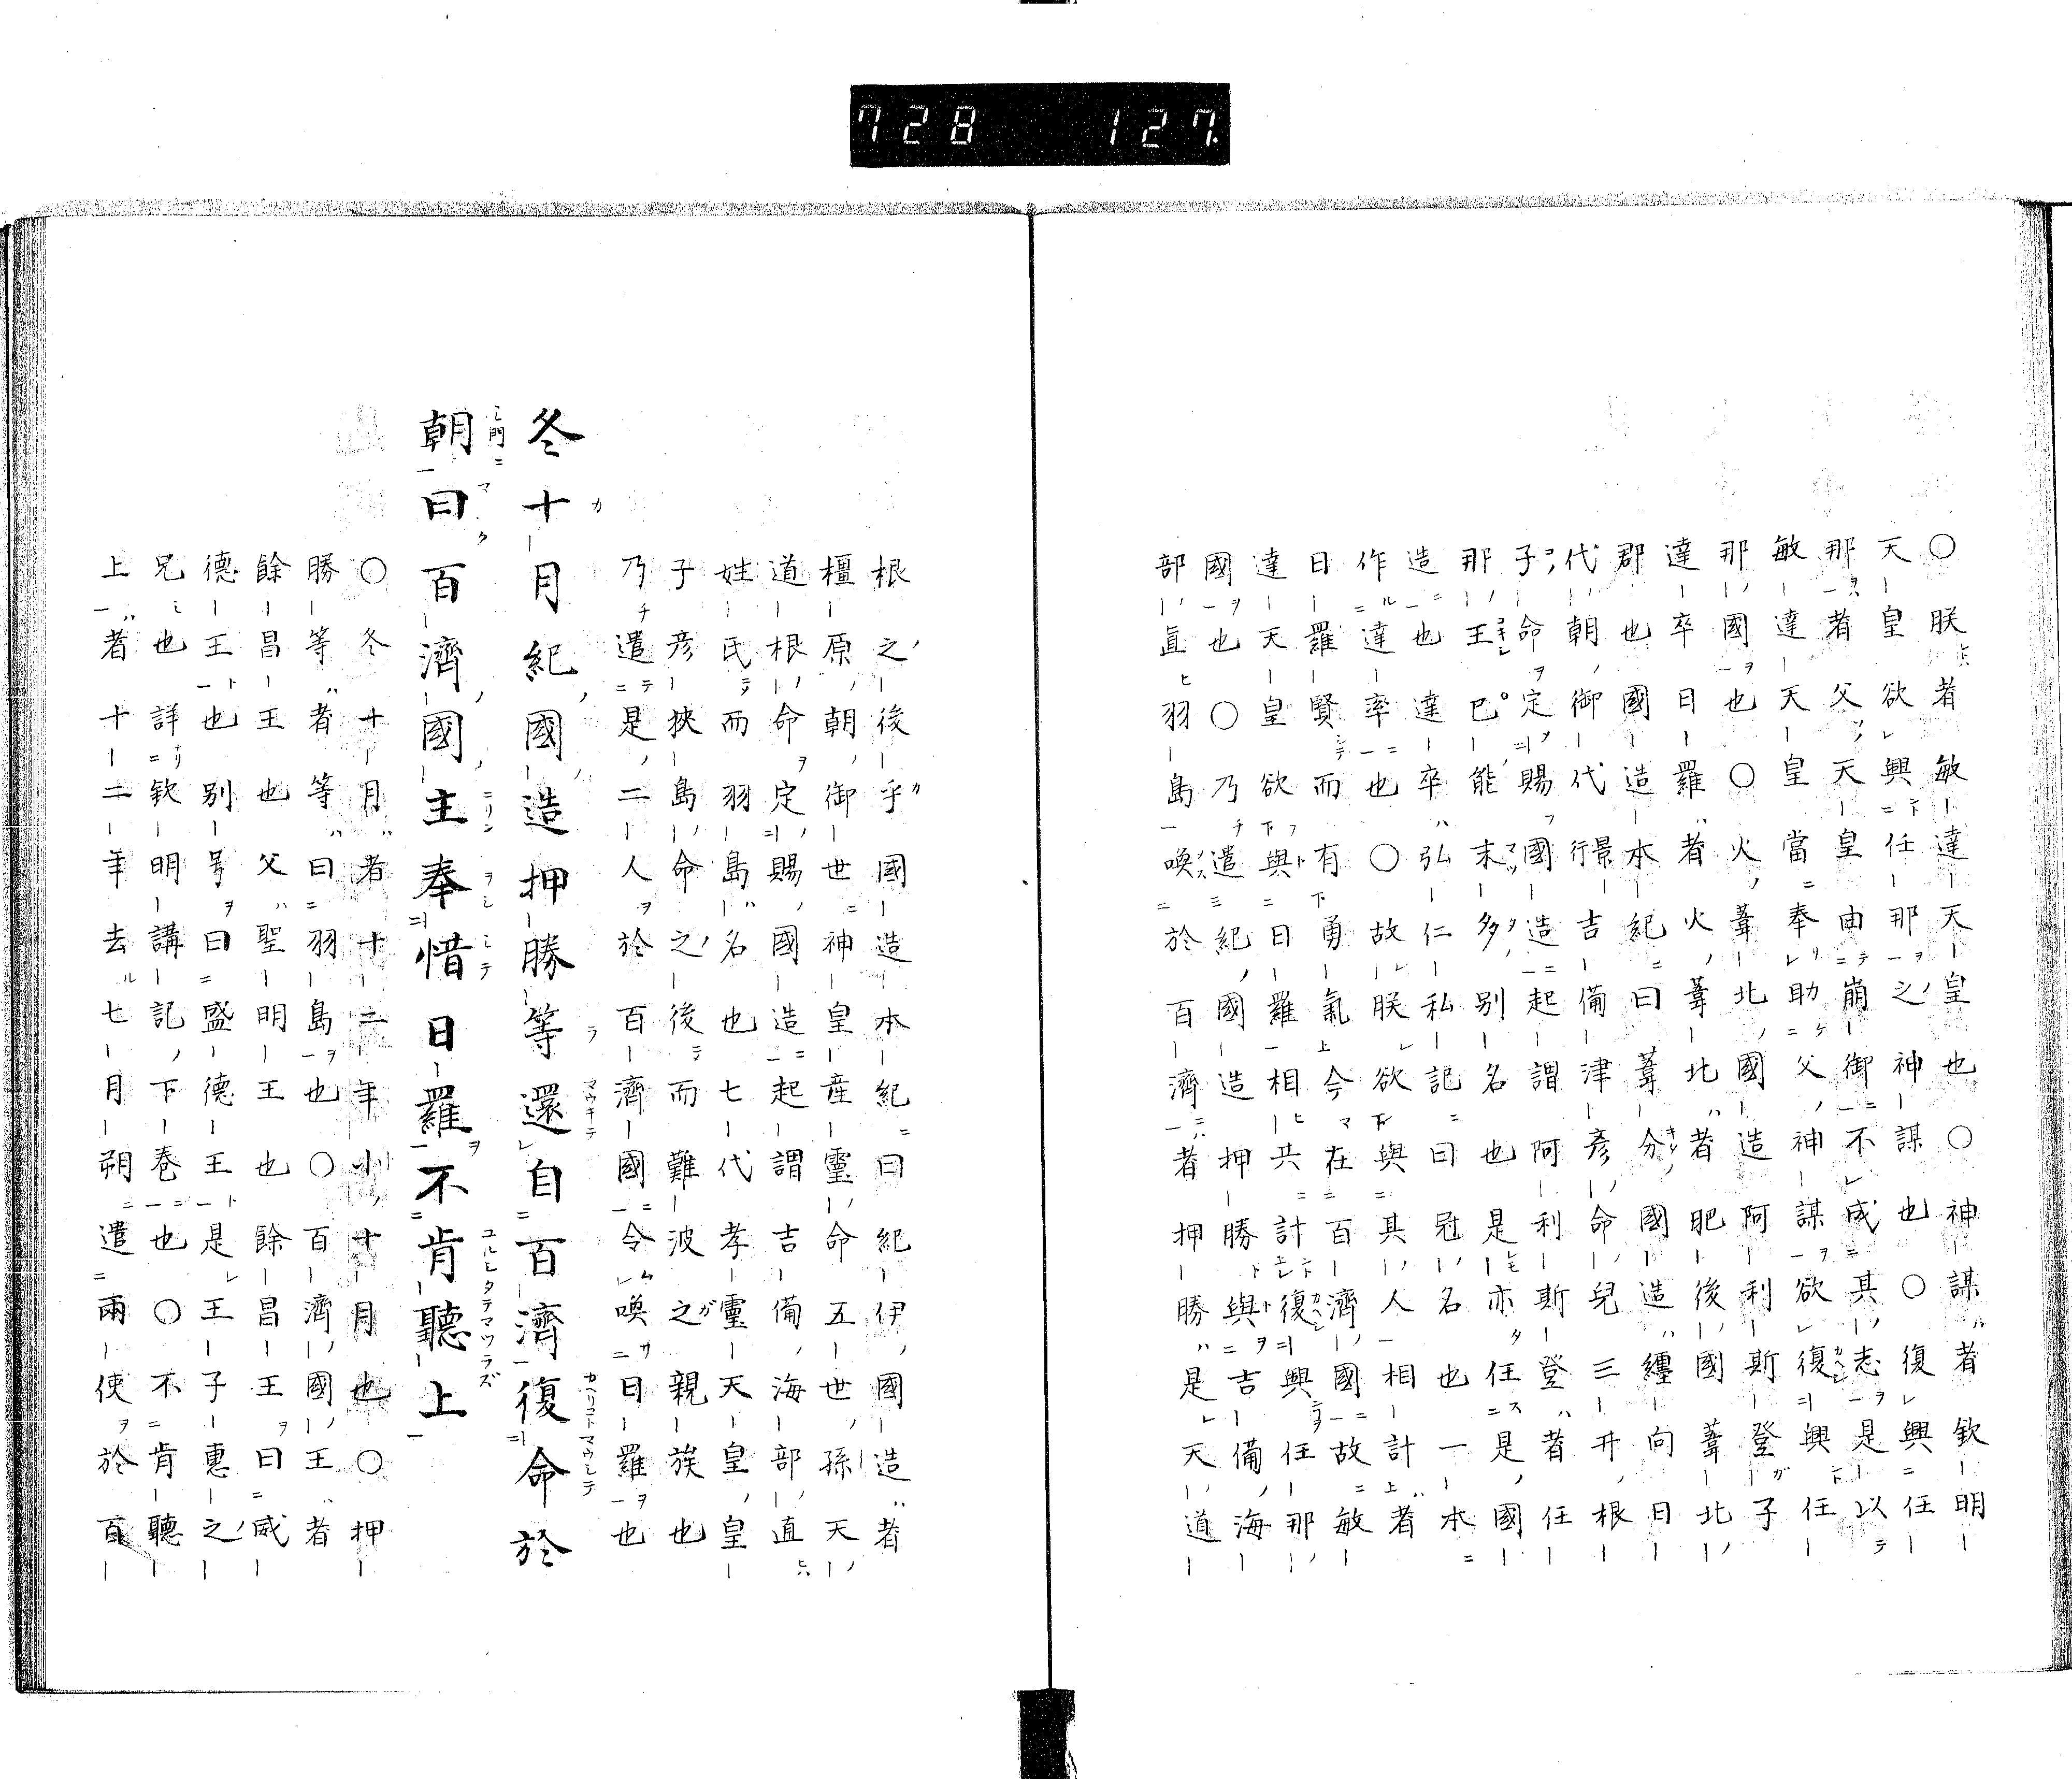 728 127
○朕者敏達天皇也○神謀者欽明
天皇欲興任那之神謀也○復興任
那者父天皇由崩御不成其志是以
敏達天皇當奉助父神謀欲復興任
那國也○火葦北國造阿利斯登子
達卒日羅者火葦北者肥後國葦北
郡也國造本紀曰葦分國造纏向日
代朝御代景行吉備津彦命兒三井根
子命定賜國造起謂阿利斯登者任
那王巳能末多別名也是亦任是國
造也達卒弘仁私記曰冠名也一本
作達率也○故朕欲與其人相計者
日羅賢而有勇氣今在百濟國故敏
達天皇欲與日羅相共計復興任那
國也○乃遣紀國造押勝與吉備海
部直羽島喚於百濟者押勝是天道
根之後乎國造本紀曰紀伊國造者
橿原朝御世神皇産靈命五世孫天
道根命定賜國造起謂吉備海部直
姓氏而羽島名也七代孝靈天皇皇
子彦狹島命之後而難波之親族也
乃遣是二人於百濟國令喚日羅也
冬十月紀國造押勝等還自百濟復命於
朝曰百濟國主奉惜日羅不肯聽上
○冬十月者十二年小十月也○押
勝等者等曰羽島也○百濟國王者
餘昌王也父聖明王也餘昌王曰威
德王也別号曰盛德王是王子惠之
兄也詳欽明講記下卷也○不肯聽
上者十二年去七月朔遣兩使於百